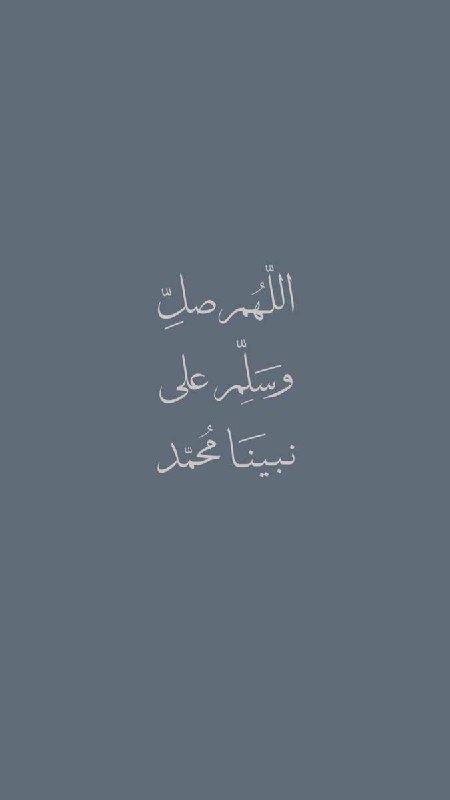 اللّهُم صلِّ
وَسَلِّم على
نبينَا مُحمّد